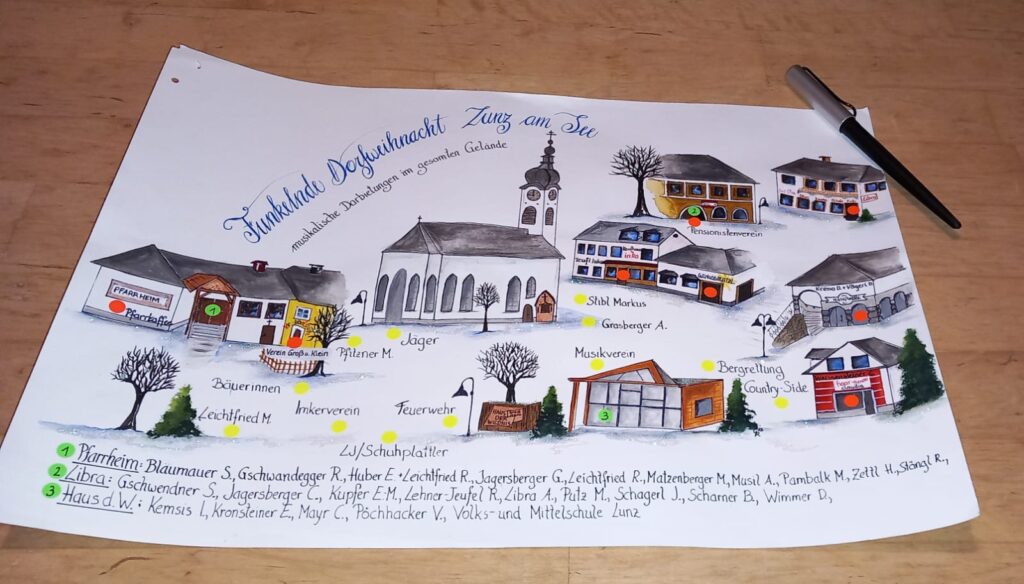 Funkelnde Dorfweihnacht Lunz am See
musikalische Darbietungen im gesamten Gelände
PFARRHEIM
Pfarrkaffee
1
Verein Groß u. Klein
Pfitzner M.
Jäger
2
Pensionistenverein
Stibl Markus
Grasberger A.
Bäuerinnen
Leichtfried M.
Imkerverein
Feuerwehr
LJ/Schuhplattler
Musikverein
3
Bergrettung
Country-Side
1 Pfarrheim: Blaumauer S., Gschwandegger R., Huber E + Leichtfried R., Jagersberger G., Leichtfried R., Matzenberger M., Musil A., Pambalk M., Zettl H., Stängl R.,
2 Libra: Gschwendner S., Jagersberger C., Kupfer E-M., Lehner-Jeufel R., Libra A., Putz M., Schagerl J., Scharner B., Wimmer D.,
3 Haus d. W.: Kemsis I., Kronsteiner E., Mayr C., Pöchhacker V., Volks- und Mittelschule Lunz